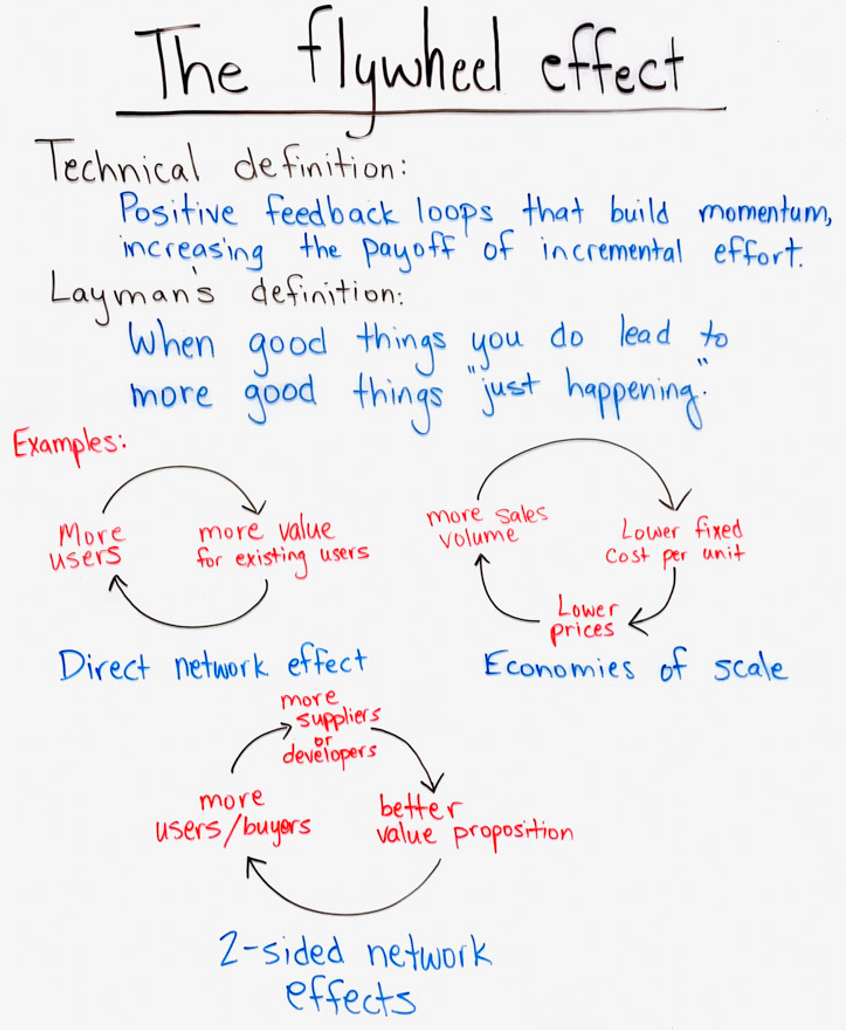 The flywheel effect
Technical definition:
Positive feedback loops that build momentum,
increasing the payoff of incremental effort.
Layman's definition:
When good things you do lead to
more good things "just happening."
Examples:
More
users
more value
for existing users
Direct network effect
more sales
volume
Lower fixed
cost per unit
Lower
prices
Economies of scale
more
suppliers
or
developers
more
users/buyers
better
value proposition
2-sided network
effects